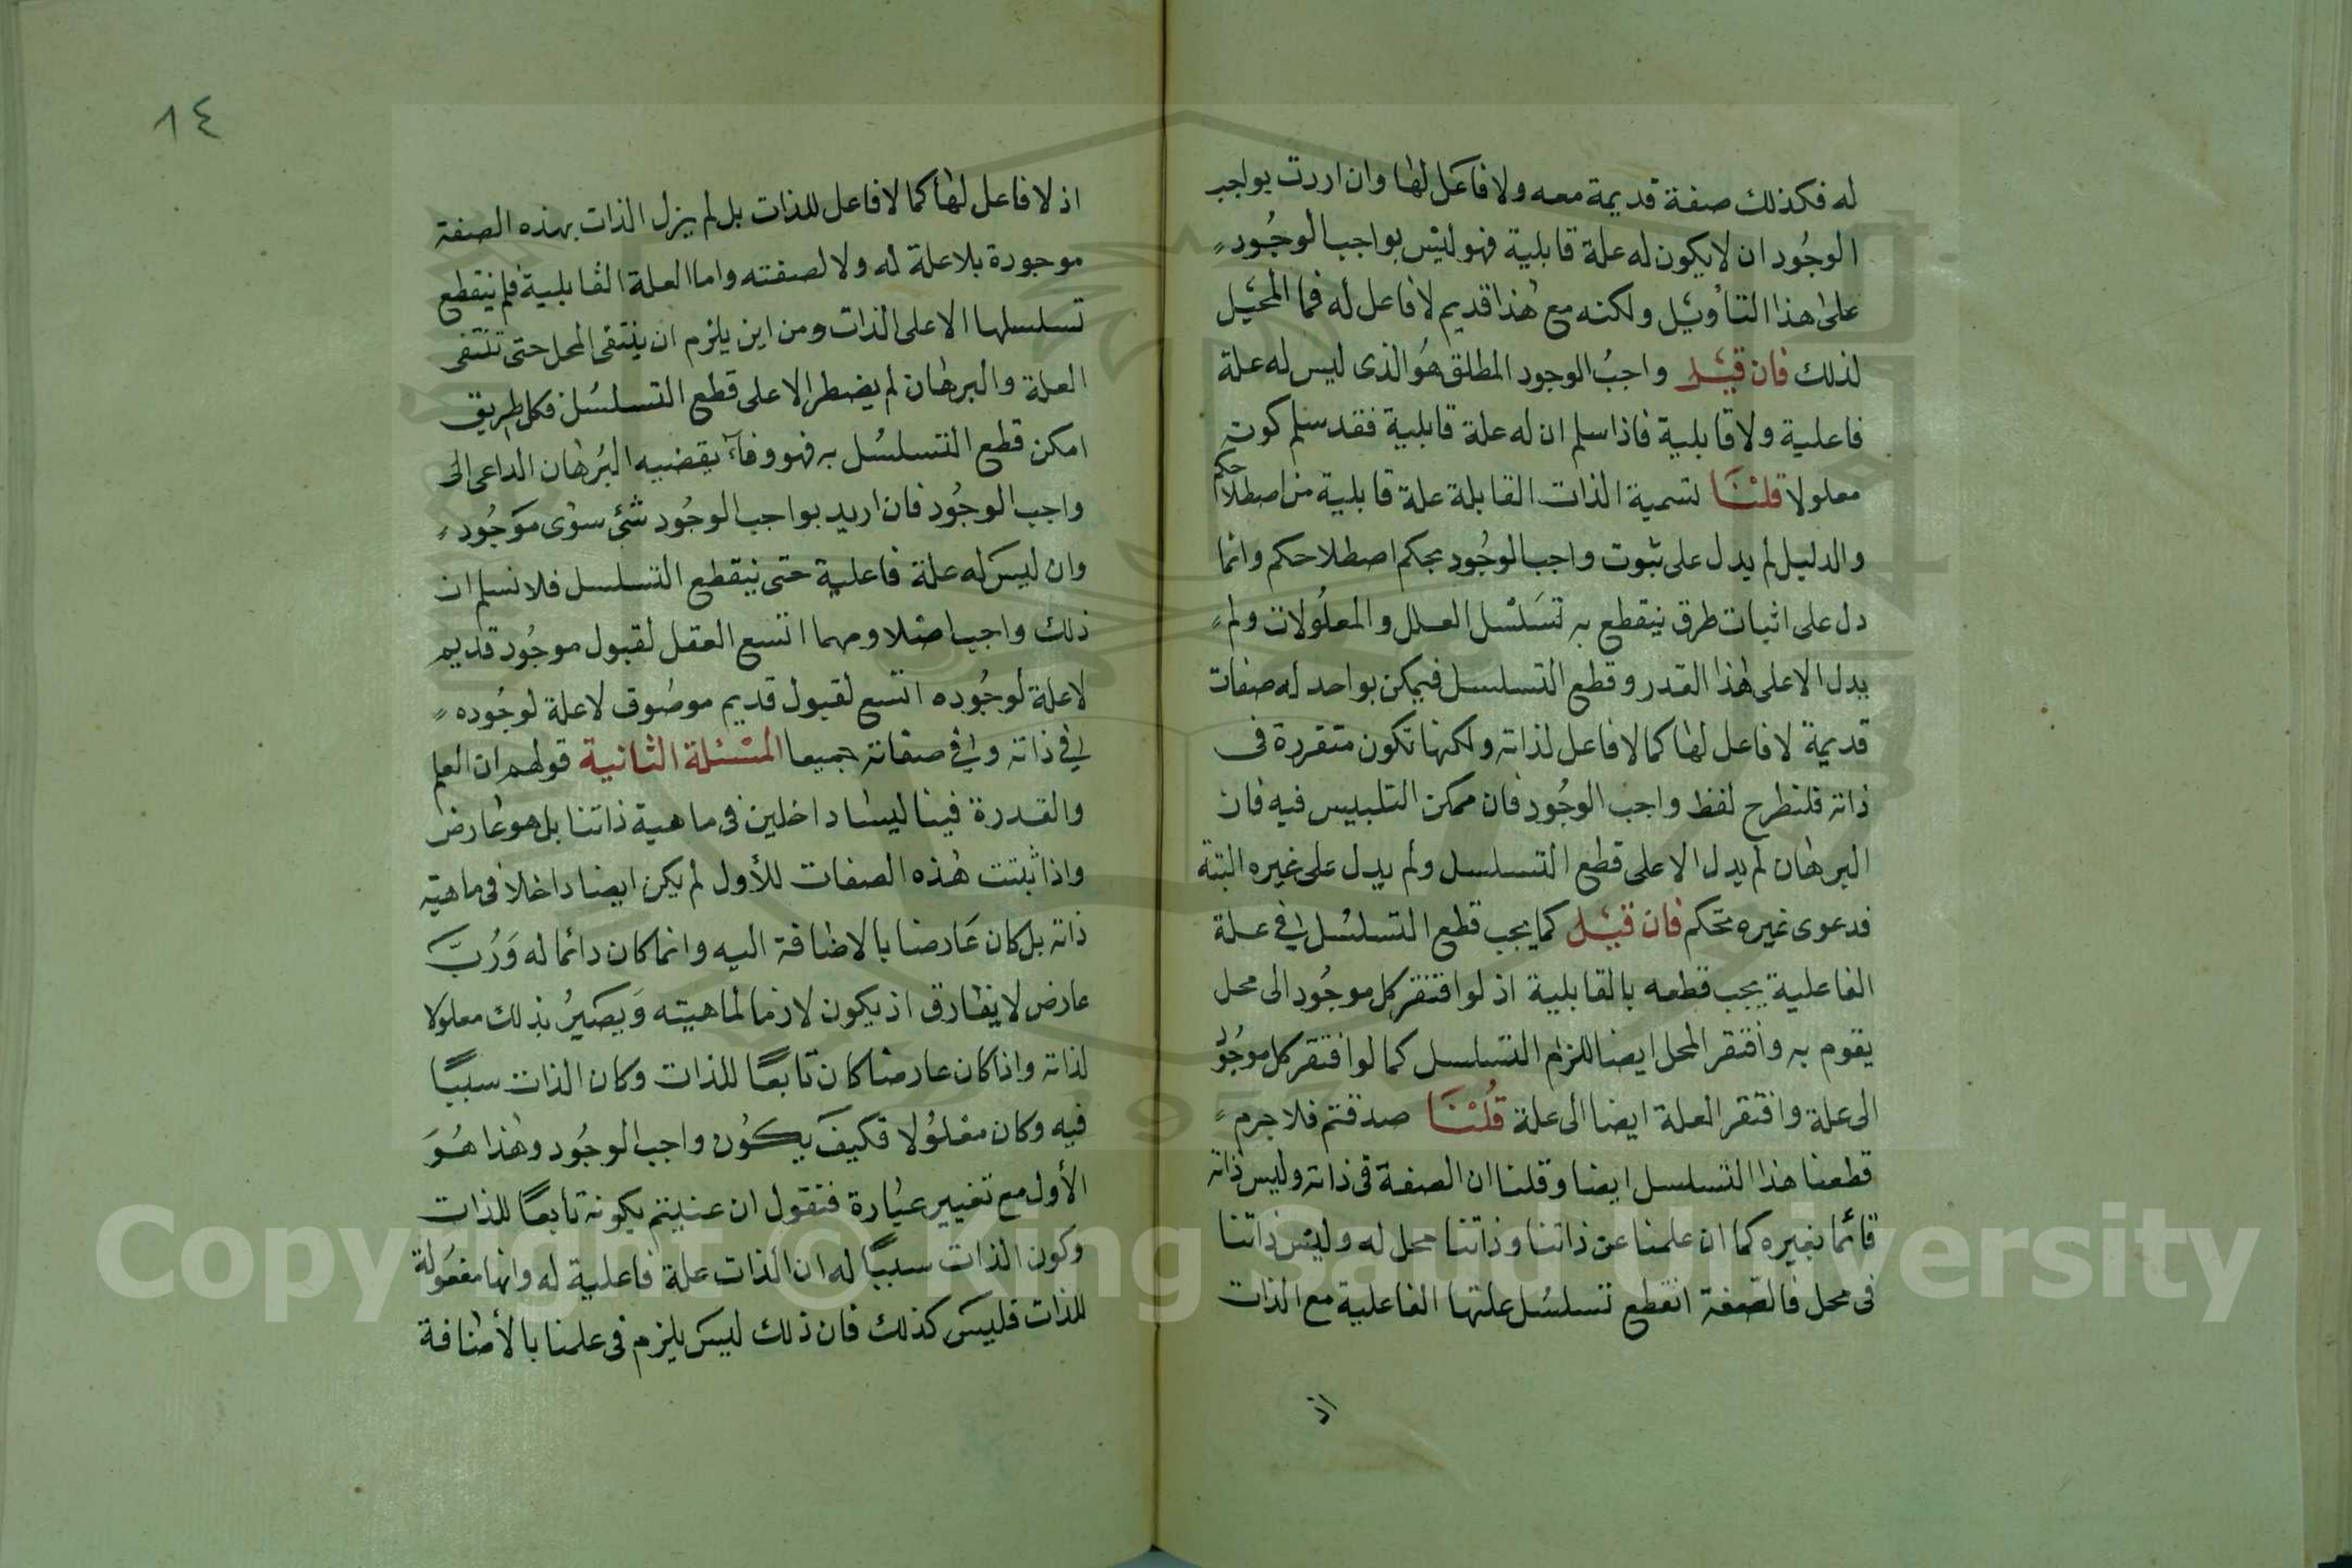 له فكذلك صفة قديمة معه ولا فاعل لها وان اردت بواجب
الوجُود ان لا يكون له علة قابلية فهو ليس بواجب الوجُود
على هذا التأويل ولكنه مع هذا قديم لا فاعل له فما المحيل
لذلك فان قيل واجبُ الوجود المطلق هُو الذى ليس له علة
فاعلية ولا قابلية فاذا سلم ان له علة قابلية فقد سلم كونه
معلولا قلنا تسمية الذات القابلة علة قابلية من اصطلاحكم
والدليل لم يدل على ثبوت واجب الوجُود بحكم اصطلاحكم وانما
دل على اثبات طرق ينقطع به تسَلسُل العلل والمعلُولات ولم
يدل الا على هذا القدر وقطع التسلسل فيمكن بواحد له صفات
قديمة لا فاعل لها كما لا فاعل لذاته ولكنها تكون متقررة فى
ذاته فلنطرح لفظ واجب الوجُود فان ممكن التلبيس فيه فان
البرهان لم يدل الا على قطع التسلسل ولم يدل على غيره البتة
فدعوى غيره تحكم فان قيل كما يجب قطع التسلسُل فى علة
الفاعلية يجب قطعه بالقابلية اذ لو افتقر كل موجُود الى محل
يقوم به وافتقر المحل ايضا للزم التسلسل كما لو افتقر كل موجُود
الى علة وافتقر العلة ايضا الى علة قُلنَا صدقتم فلا جرم
قطعنا هذا التسلسل ايضا وقلنا ان الصفة فى ذاته وليس ذاته
قائما بغيره كما ان علمنا عن ذاتنا وذاتنا محل له وليس ذاتنا
فى محل فالصّفة انقطع تسلسُل علتها الفاعلية مع الذات
اذ
٨٤
اذ لا فاعل لها كما لا فاعل للذات بل لم يزل الذات بهذه الصفة
موجودة بلا علة له ولا لصفته واما العلة القابلية فلم ينقطع
تسلسلها الا على الذات ومن اين يلزم ان ينتفى المحل حتى تنتفى
العلة والبرهان لم يضطر الا على قطع التسلسُل فكل طريق
امكن قطع التسلسُل به فهو وفاء بقضيه البُرهان الداعى الى
واجب الوجُود فان اريد بواجب الوجُود شئ سوى موَجُود
وان ليس له علة فاعلية حتى ينقطع التسلسل فلا نسلم ان
ذلك واجب اصلا ومهما اتسع العقل لقبول موجُود قديم
لا علة لوجُوده اتسع لقبول قديم موصُوف لا علة لوجُوده
فى ذاته وفى صفاته جميعا المسئلة الثانية قولهم ان العلم
والقدرة فينا ليسا داخلين فى ماهية ذاتنا بل هو عارض
واذا ثبتت هذه الصفات للأول لم يكن ايضا داخلا فى ماهية
ذاته بل كان عَارضا بالاضافة اليه وانما كان دائما له وَرُبَّ
عارض لا يفارق اذ يكون لازما لماهيته وَيصَيرُ بذلك معلولا
لذاته واذا كان عارضا كان تابعًا للذات وكان الذات سببًا
فيه وكان معْلوُلا فكيفَ يكوُن واجب الوجُود وهذا هُوَ
الأول مع تغيير عبَارة فنقول ان عنيتم بكونه تابعًا للذات
وكون الذات سببًا له ان الذات علة فاعلية له وانها مفعُولة
للذات فليسَ كذلك فان ذلك ليس يلزم فى علمنا بالأضافة
Copyright © King Saud University